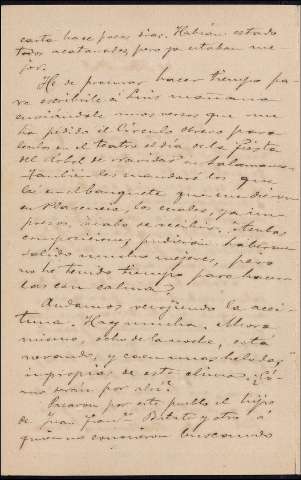 carta hace pocos dias. Habían estado
todos acatarrados pero ya estaban me-
jor.
He de procurar hacer tiempo pa-
ra escribirle á Luis mañana
enviándole unos versos que me
ha pedido el Círculo obrero para
leerlos en el teatro el día de la fiesta
del Arbol de Navidad en Salamanca.
También les mandaré los que
leí en el banquete que me dieron
en Plasencia, los cuales, ya im-
presos, acabo de recibir. Ambas
composiciones pudieran haberme
salido mucho mejores, pero
no he tenido tiempo para hacer-
las con calma.
Andamos cogiendo la acei-
tuna. Hay mucha. Ahora
mismo, ocho de la noche, está
nevando, y caen unas heladas
impropias de este clima. ¿Có-
mo serán por ahí?
por este pueblo el hijo
de Juan y otro á
quien no conocieron buscando